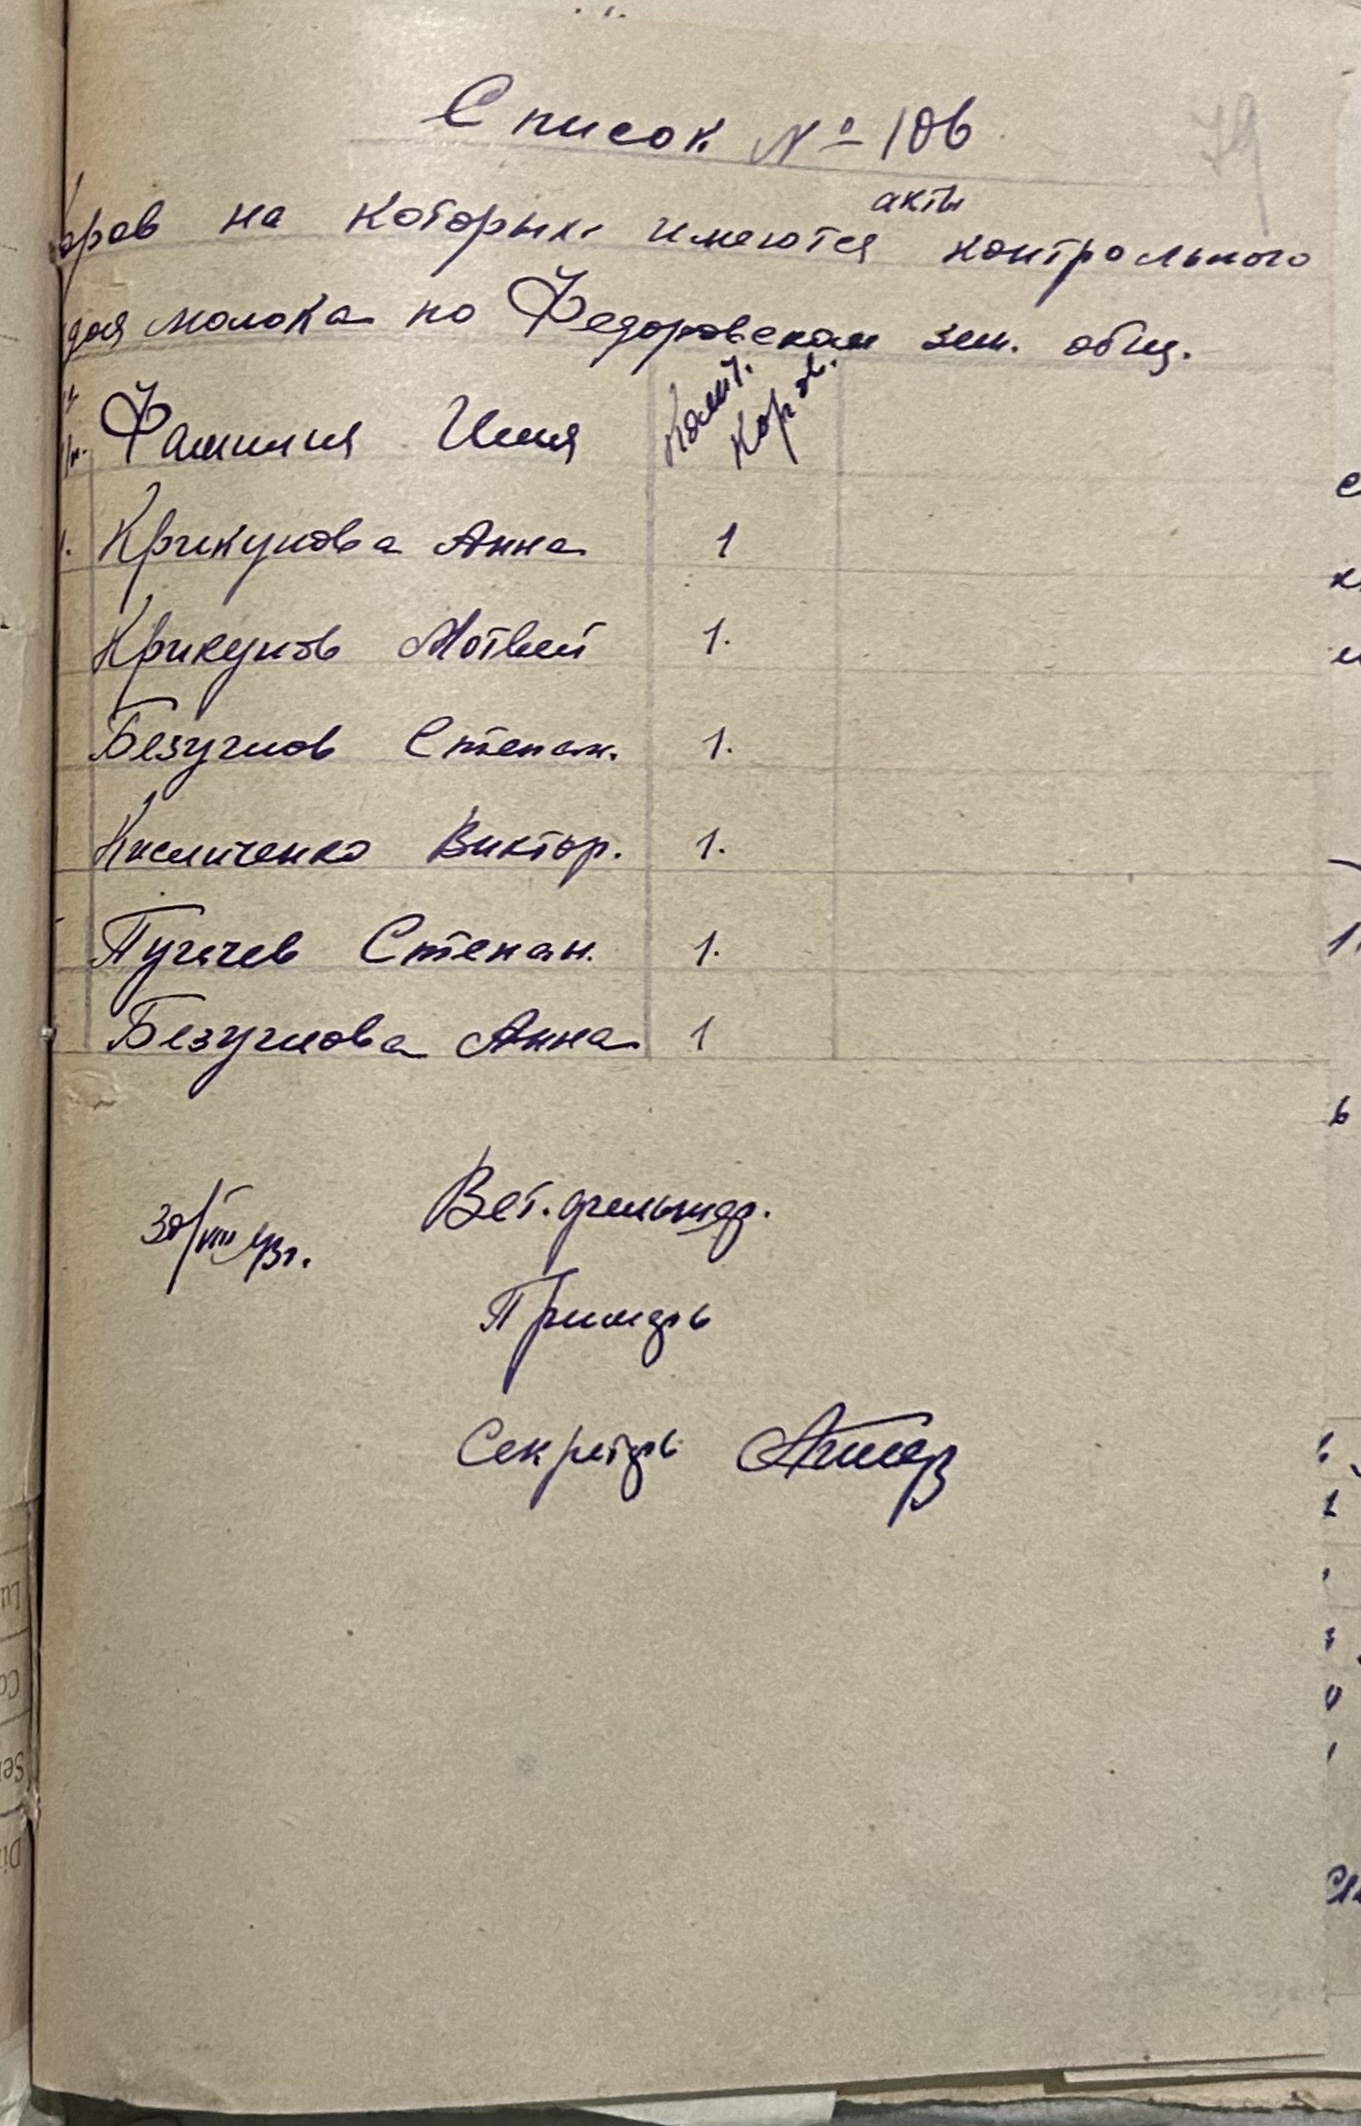 Список № 106
79
акты
оров на которых имеются контрольного
доя молока по Федоровском зем. общ.
Фамилия Имя Колич. Коров.
1. Крикунова Анна 1
Крикунов Матвей 1.
Безуглов Степан. 1.
Кисличенко Виктор. 1.
Пугачев Степан. 1.
Безуглова Анна 1
30/VIII 43г. Вет. фельшер.
Примарь
Секретарь